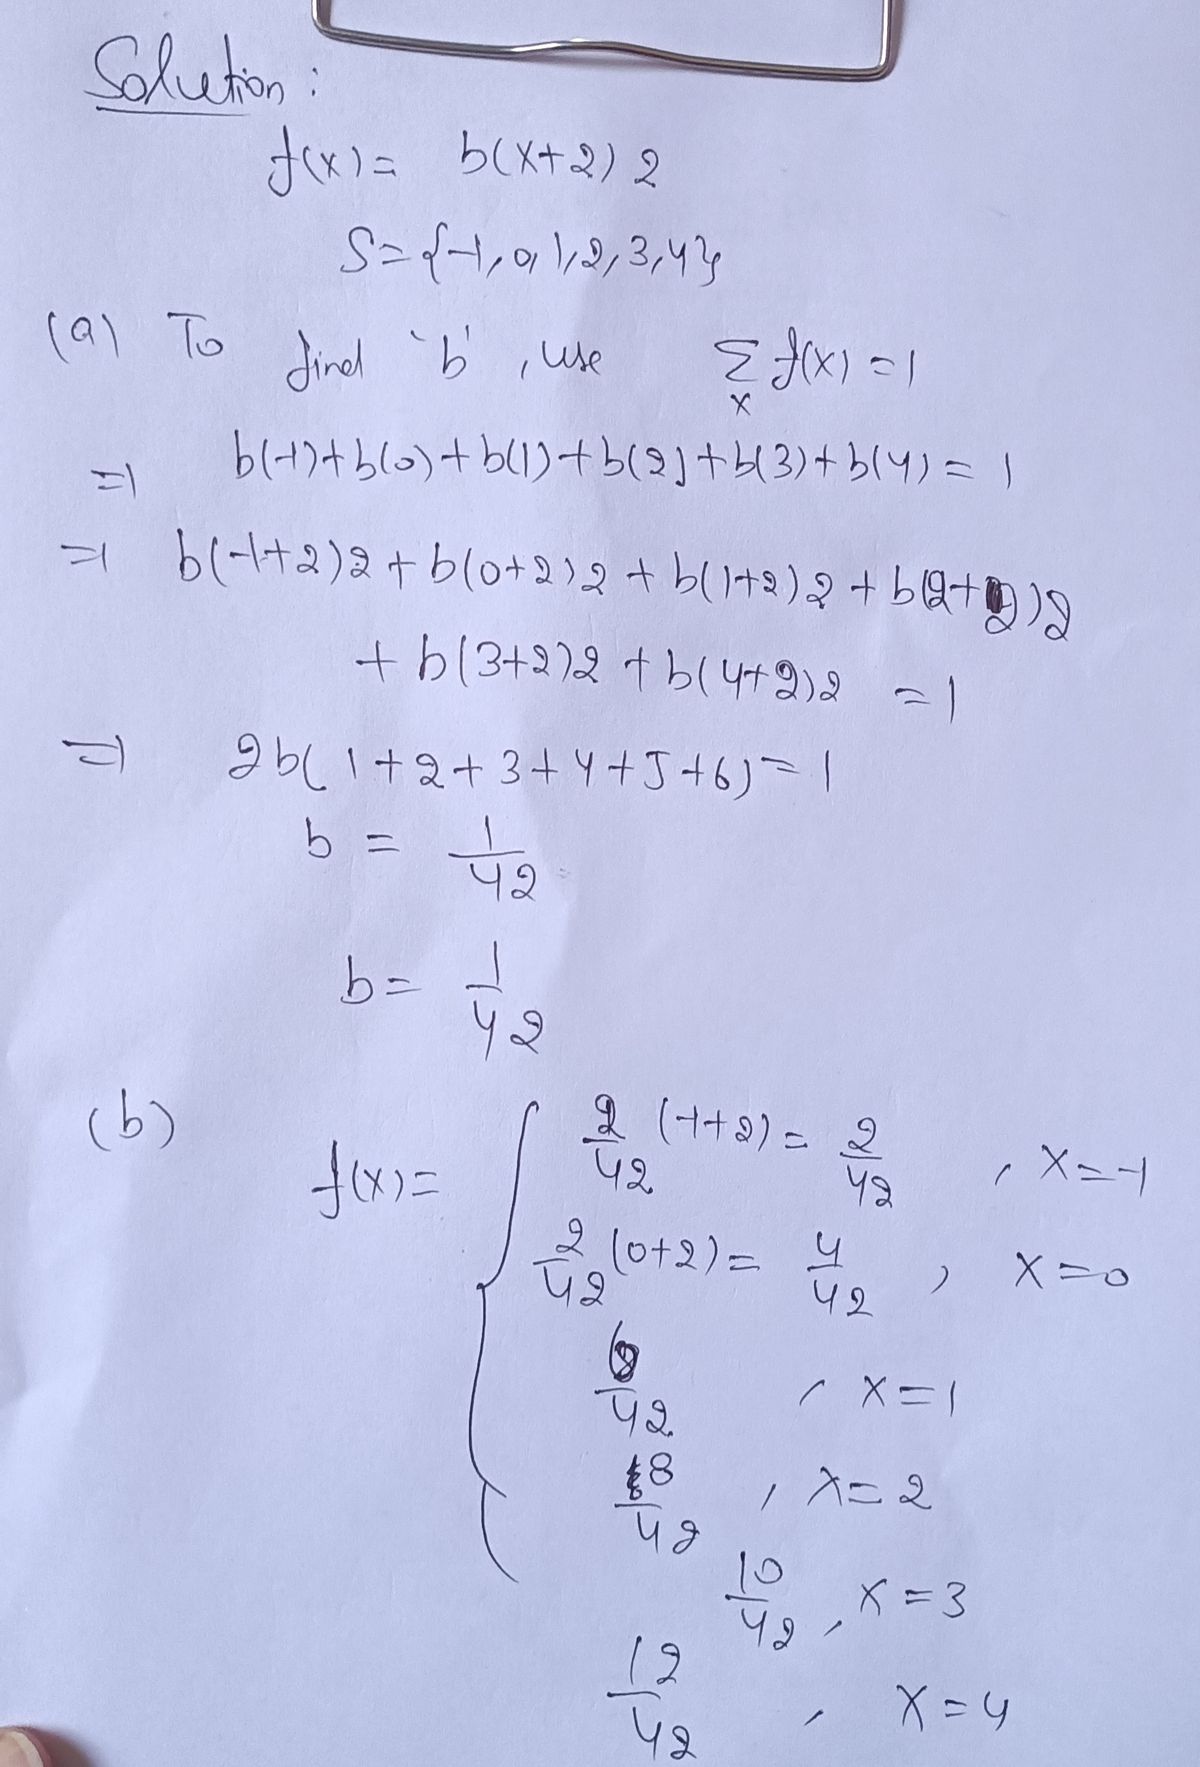 Solution:
f(x) = b(x+2) 2
S = {-1, 0, 1, 2, 3, 4}
(a) To find 'b', use Σ f(x) = 1
x
⇒ b(-1)+b(0)+b(1)+b(2)+b(3)+b(4) = 1
⇒ b(-1+2)2 + b(0+2)2 + b(1+2)2 + b(2+2)2
+ b(3+2)2 + b(4+2)2 = 1
⇒ 2b(1+2+3+4+5+6) = 1
b = 1/42
b = 1/42
(b) f(x) = { 2/42 (-1+2) = 2/42 , x=-1
2/42 (0+2) = 4/42 , x=0
6/42 , x=1
8/42 , x=2
10/42 , x=3
12/42 , x=4